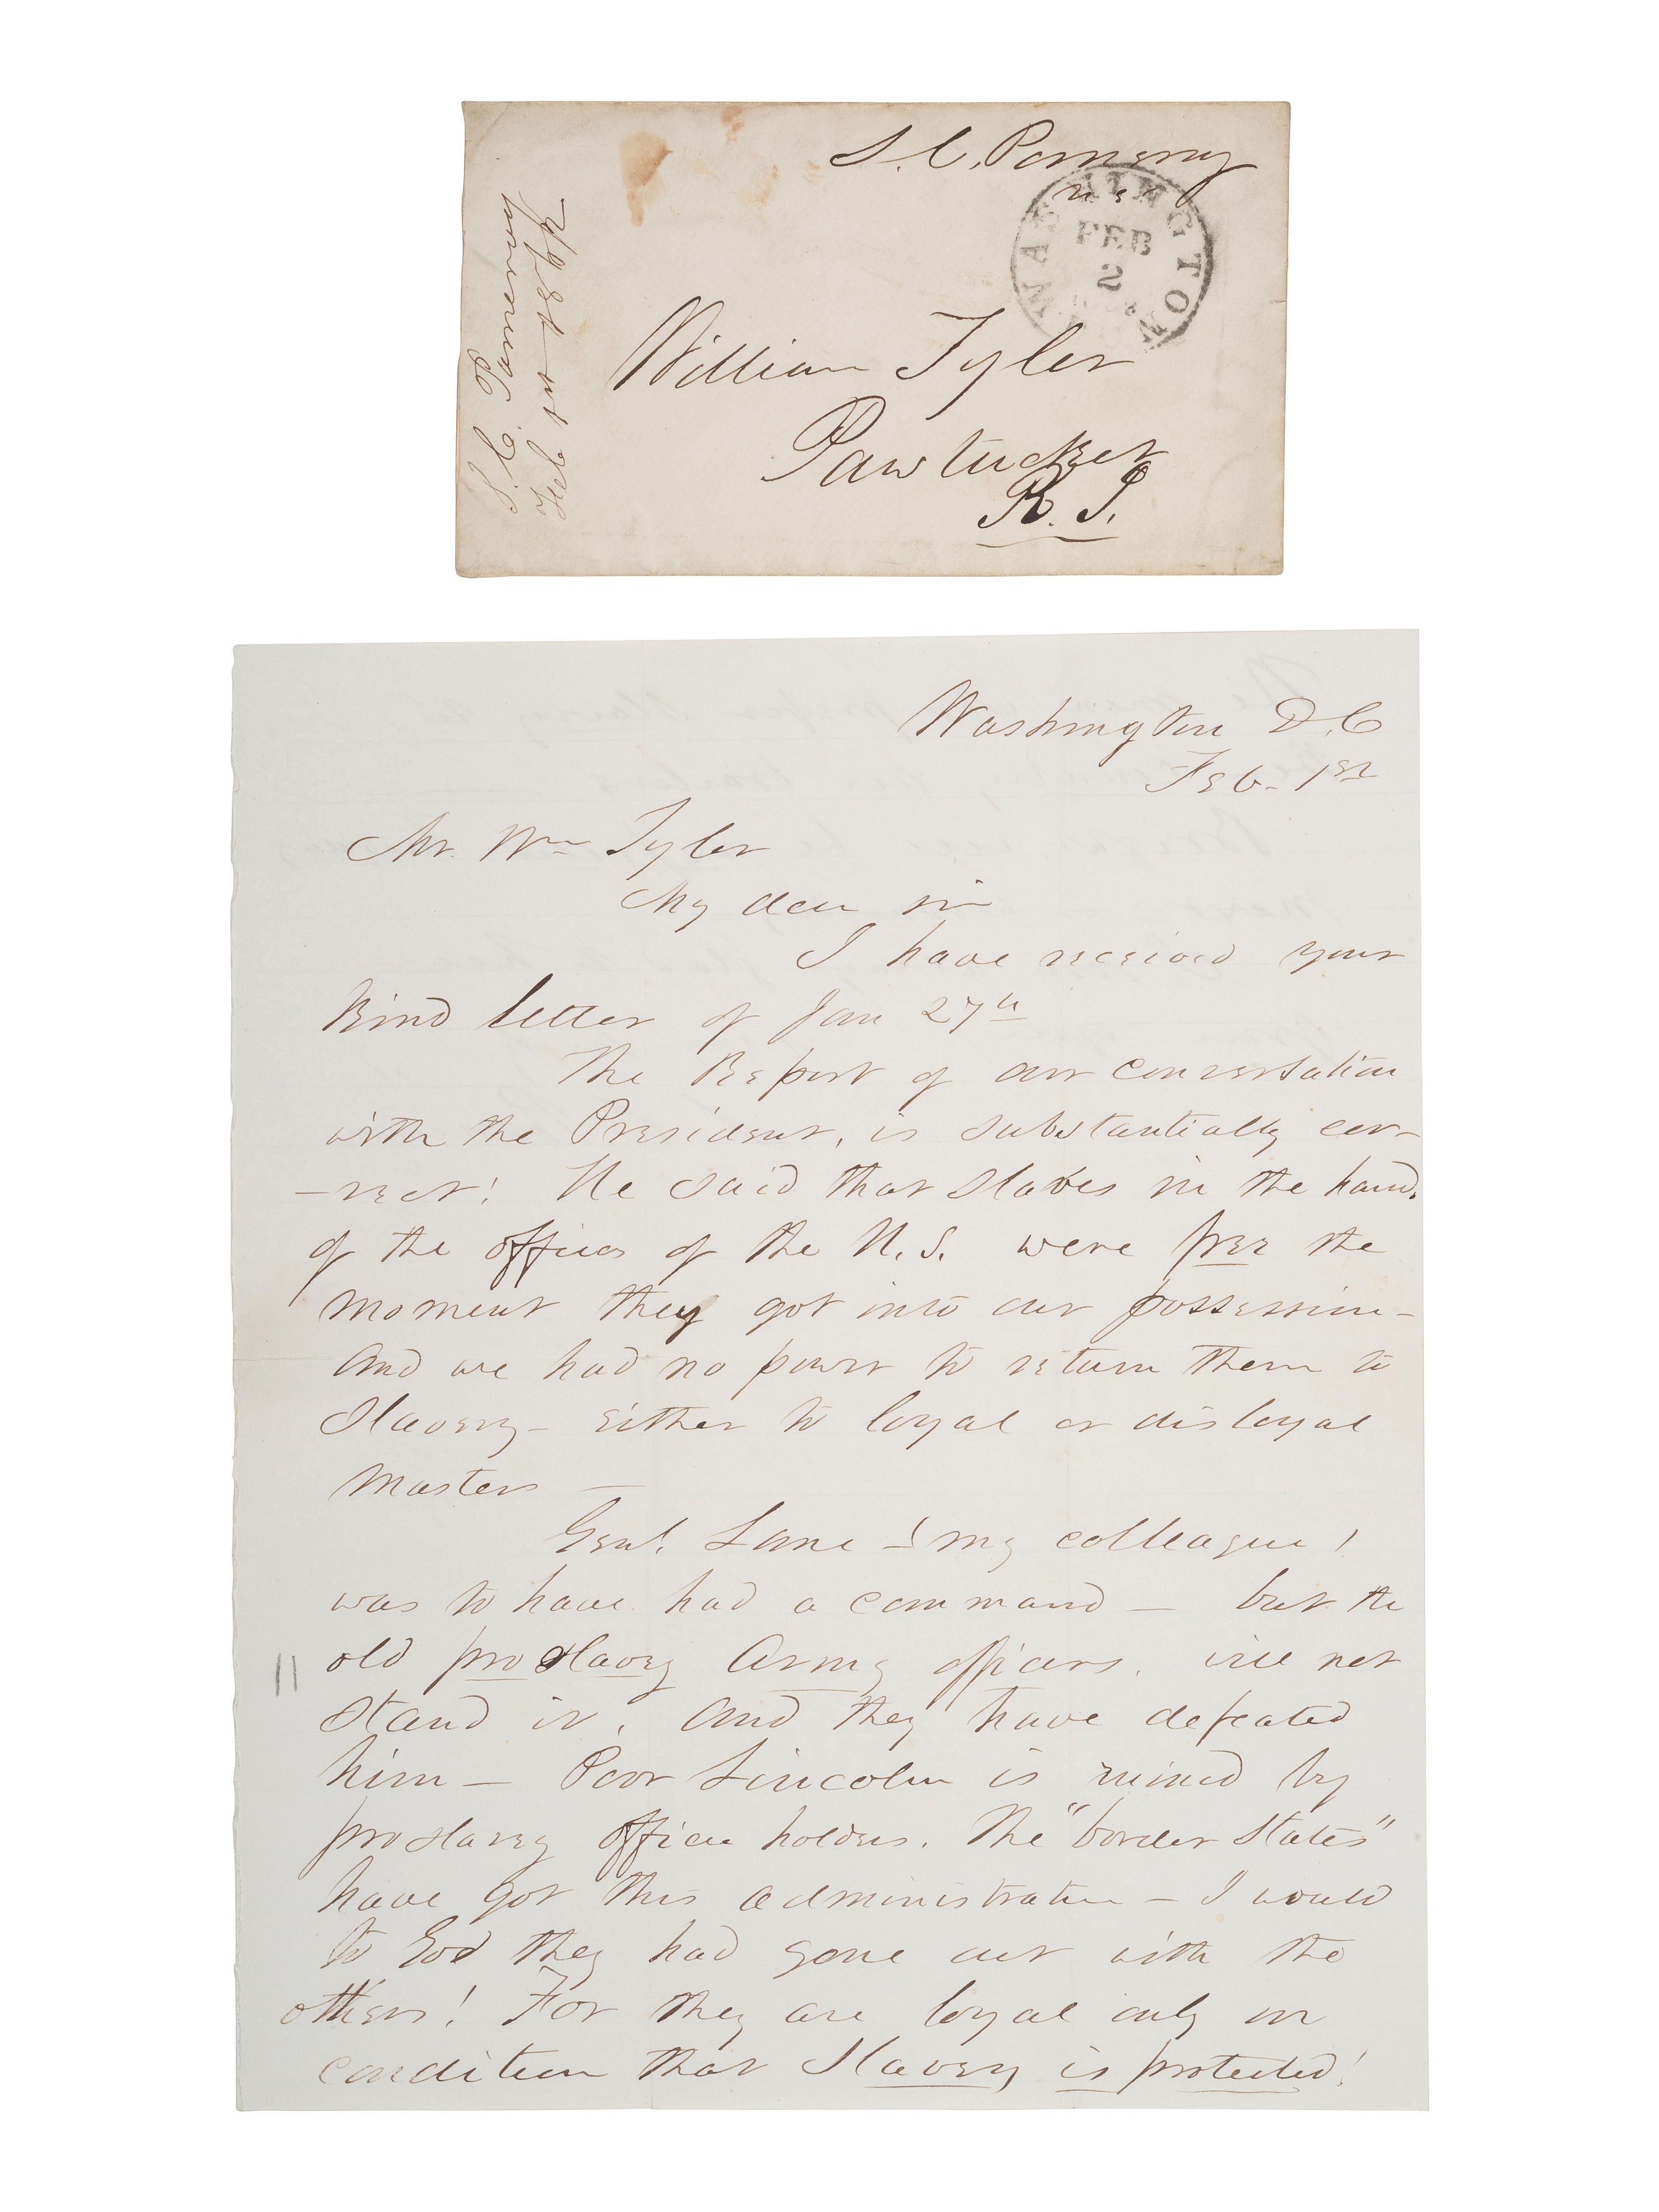 S. C. Pomeroy
U S S
WASHINGTON
FEB
2
William Tyler
Pawtucket
R. I.
S. C. Pomeroy
Feb 1st 1862
Washington D. C
Feb- 1st
Mr. Wm Tyler
My dear sir
I have received your
Kind letter of Jan 27th
The Report of our conversation
with the President, is substantially cor-
-rect! He said that slaves in the hands
of the officers of the U. S. were free the
moment they got into our possession-
And we had no power to return them to
Slavery- either to loyal or disloyal
Masters —
Genl. Lane - (my colleague)
was to have had a command — but the
old proslavery Army officers, will not
stand it, And they have defeated
him — Poor Lincoln is ruined by
proslavery office holders. The "border States"
have got this administration — I would
to God they had gone out with the
others! For they are loyal only on
condition that Slavery is protected!